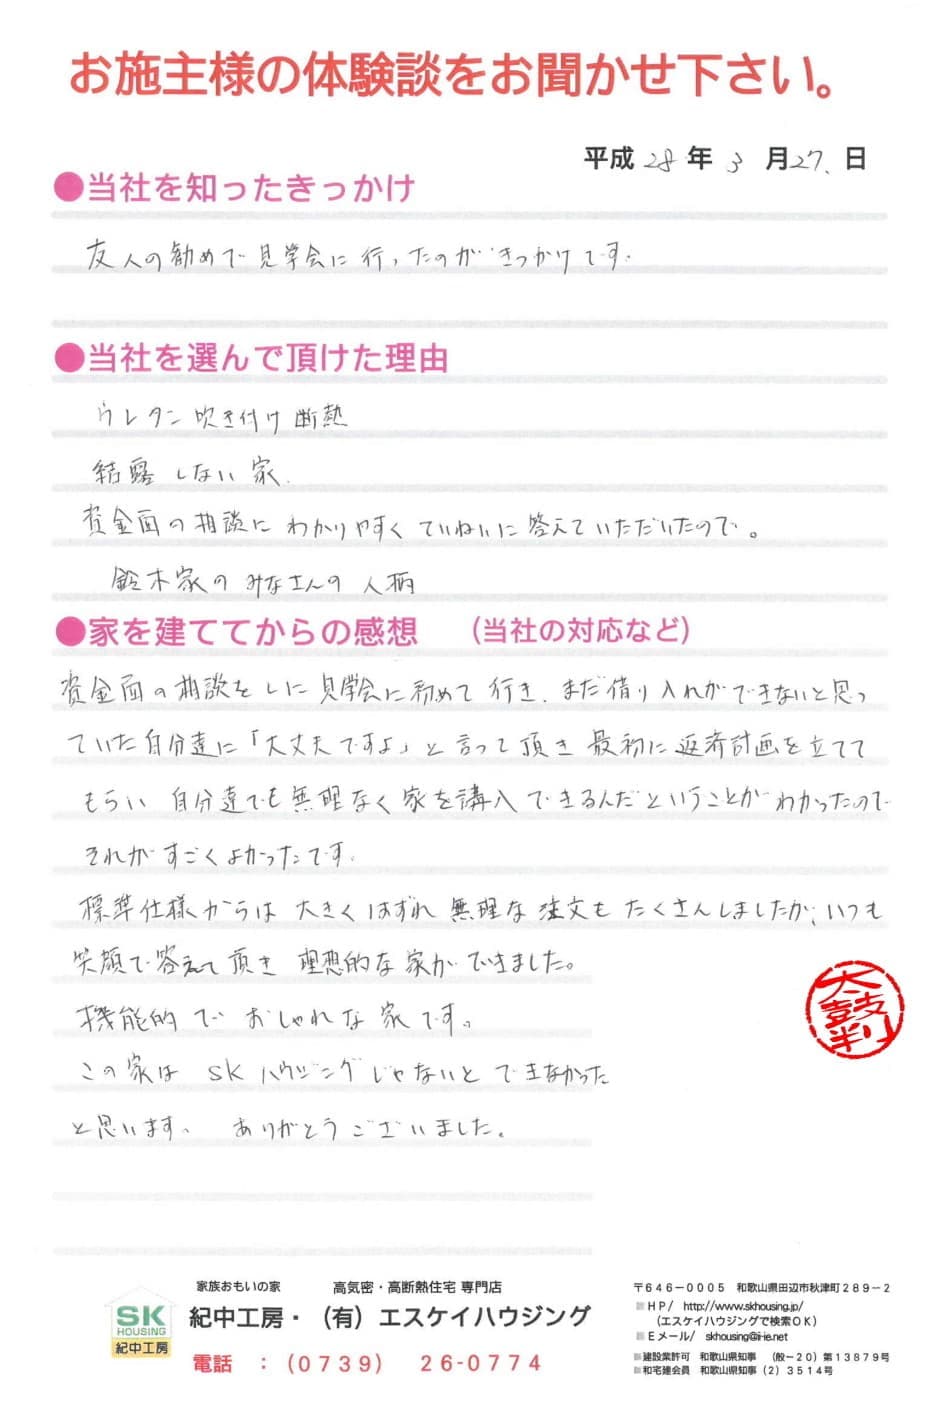 お施主様の体験談をお聞かせ下さい。
平成 28 年 3 月 27. 日
●当社を知ったきっかけ
友人の勧めで見学会に行ったのがきっかけです.
●当社を選んで頂けた理由
ウレタン吹き付け断熱
結露しない家.
資金面の相談にわかりやすくていねいに答えていただいたので。
鈴木家のみなさんの人柄
●家を建ててからの感想 (当社の対応など)
資金面の相談をしに見学会に初めて行き、まだ借り入れができないと思っ
ていた自分達に「大丈夫ですよ」と言って頂き最初に返済計画を立てて
もらい自分達でも無理なく家を購入できるんだということがわかったので
それがすごくよかったです.
標準仕様からは大きくはずれ無理な注文もたくさんしましたが、いつも
笑顔で答えて頂き理想的な家ができました。
機能的でおしゃれな家です。
この家はSKハウジングじゃないとできなかった
と思います。ありがとうございました。
太鼓判
SK HOUSING 紀中工房
家族おもいの家 高気密・高断熱住宅 専門店
紀中工房・(有)エスケイハウジング
電話 :(0739) 26-0774
〒646-0005 和歌山県田辺市秋津町289-2
HP/ http://www.skhousing.jp/
(エスケイハウジングで検索OK)
Eメール/ skhousing@i-ie.net
建設業許可 和歌山県知事 (般-20)第13879号
和宅建会員 和歌山県知事(2)3514号